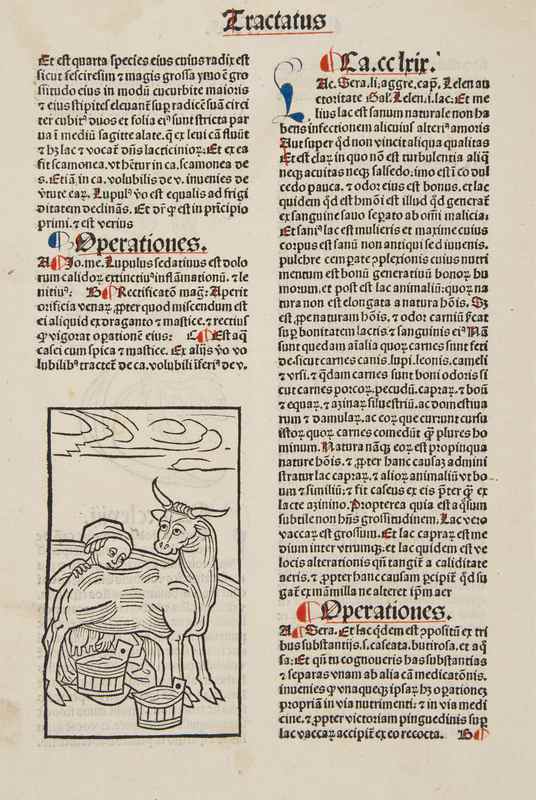 Tractatus
Et est quarta species eius cuius radix est
sicut sesciresim & magis grossa ymo ē gro
ssitudo eius in modū cucurbite maioris
& eius stipites eleuant̄ suꝑ radicē suā circi
ter cubitꝰ duos et folia eiꝰ sunt stricta par
ua t̄ mediū sagitte alate. q̄ ex leui cā fluūt
& hꝫ lac & vocat̄ dn̄s lacticiniorꝫ. Et ex ea
fit scamonea. vt hētur in ca. scamonea de
s. Etiā in ca. volubilis de v. inuenies de
v̄tute eaꝝ. Lupulꝰ v̄o est equalis ad frigi
ditatem declināns. Et dr̄ ꝙ est in prīcipio
primi. & est verius
Operationes.
A Jo. me. Lupulus sedatiuus est dolo
rum calidoꝝ extinctiuꝰ inflāmationū. & le
nitiuꝰ. B Rectificatōn maḡ: Aperit
orificia venaꝝ. ꝓpter quod miscendum est
ei aliquid ex draganto & mastice. & rectius
ꝙ vigorat operationē eius: C Est aq̄
casei cum spica & mastice. Ex alijs v̄o vo
lubilibꝰ tractet̄ de ca. volubili īferiꝰ de v.
Ca. cc lxix.
LAc. Sera. li. aggre. cap. Lelen au
ctoritate Gal. Lelen. i. lac: Et me
lius lac est sanum naturale non ha
bens infectionem alicuius alteriꝰ amoris
Aut super qd non vincit aliqua qualitas
Et est claꝝ in quo nō est turbulentia aliq̄
neqꝫ acuitas neqꝫ salsedo. imo est ī co dul
cedo pauca. & odor eius est bonus. et lac
quidem qd est hmōi est illud qd generat̄
ex sanguine sano seꝑato ab oīni malicia:
Et saniꝰ lac est mulieris et maxime cuius
corpus est sanū non antiqui sed iuuenis.
pulchre cemperate ꝯplexionis cuius nutri
mentum est bonū generatiuū bonoꝝ hu
morum. et post est lac animaliū: quoꝝ na
tura non est elongata a natura hōis. Sꝫ
est ꝓpe naturam hōis. & odor carniū sicat
suꝑ bonitatem lactis & sanguinis eiꝰ Nā
sunt quedam aīalia quoꝝ carnes sunt feti
de. sicut carnes canis. lupi. leonis. cameli
& vrsi. & qdam carnes sunt boni odoris si
cut carnes porcoꝝ. pecudū. capraꝝ. & boū
& equaꝝ. & azinaꝝ siluestriū. ac domesticoa
rum & damulaꝝ. ac eoꝝ que currunt cursu
istoꝝ quoꝝ carnes comedūt ꝙ plures ho
minum. Natura nāqꝫ eoꝝ est propinqua
nature hōis. & ꝓpter hanc causaꝫ admini
stratur lac capraꝝ. & alioꝝ animaliū vt bo
um & similiū: & fit caseus ex eis p̄ter ꝙ ex
lacte azinino. Propterea quia est aquisum
subtile non hn̄s grossitudinem. Lac vero
vaccaꝝ est grossum. Et lac capraꝝ est me
dium inter vtrumqꝫ. et lac quidem est ve
locis alterationis qn̄ tangit̄ a caliditate
aeris. & ꝓpter hanc causam ꝑcipit̄ qd su
gat̄ ex mamilla ne alteret ip̄m aer
Operationes.
A Sera. Et lac qdem est ꝯpositū ex tri
bus substantijs. s. caseata. butirosa. et aq̄
sa: Et qn̄ tu cognoueris has substantias
& separas vnam ab alia cā medicatōnis.
inuenies ꝙ vnaqueqꝫ ipsaꝝ hꝫ oꝑationeꝫ
propriā in via nutrimenti: & in via medi
cine. & ꝓpter victoriam pinguedinis suꝑ
lac vaccaꝝ accipit̄ ex eo recocta. B